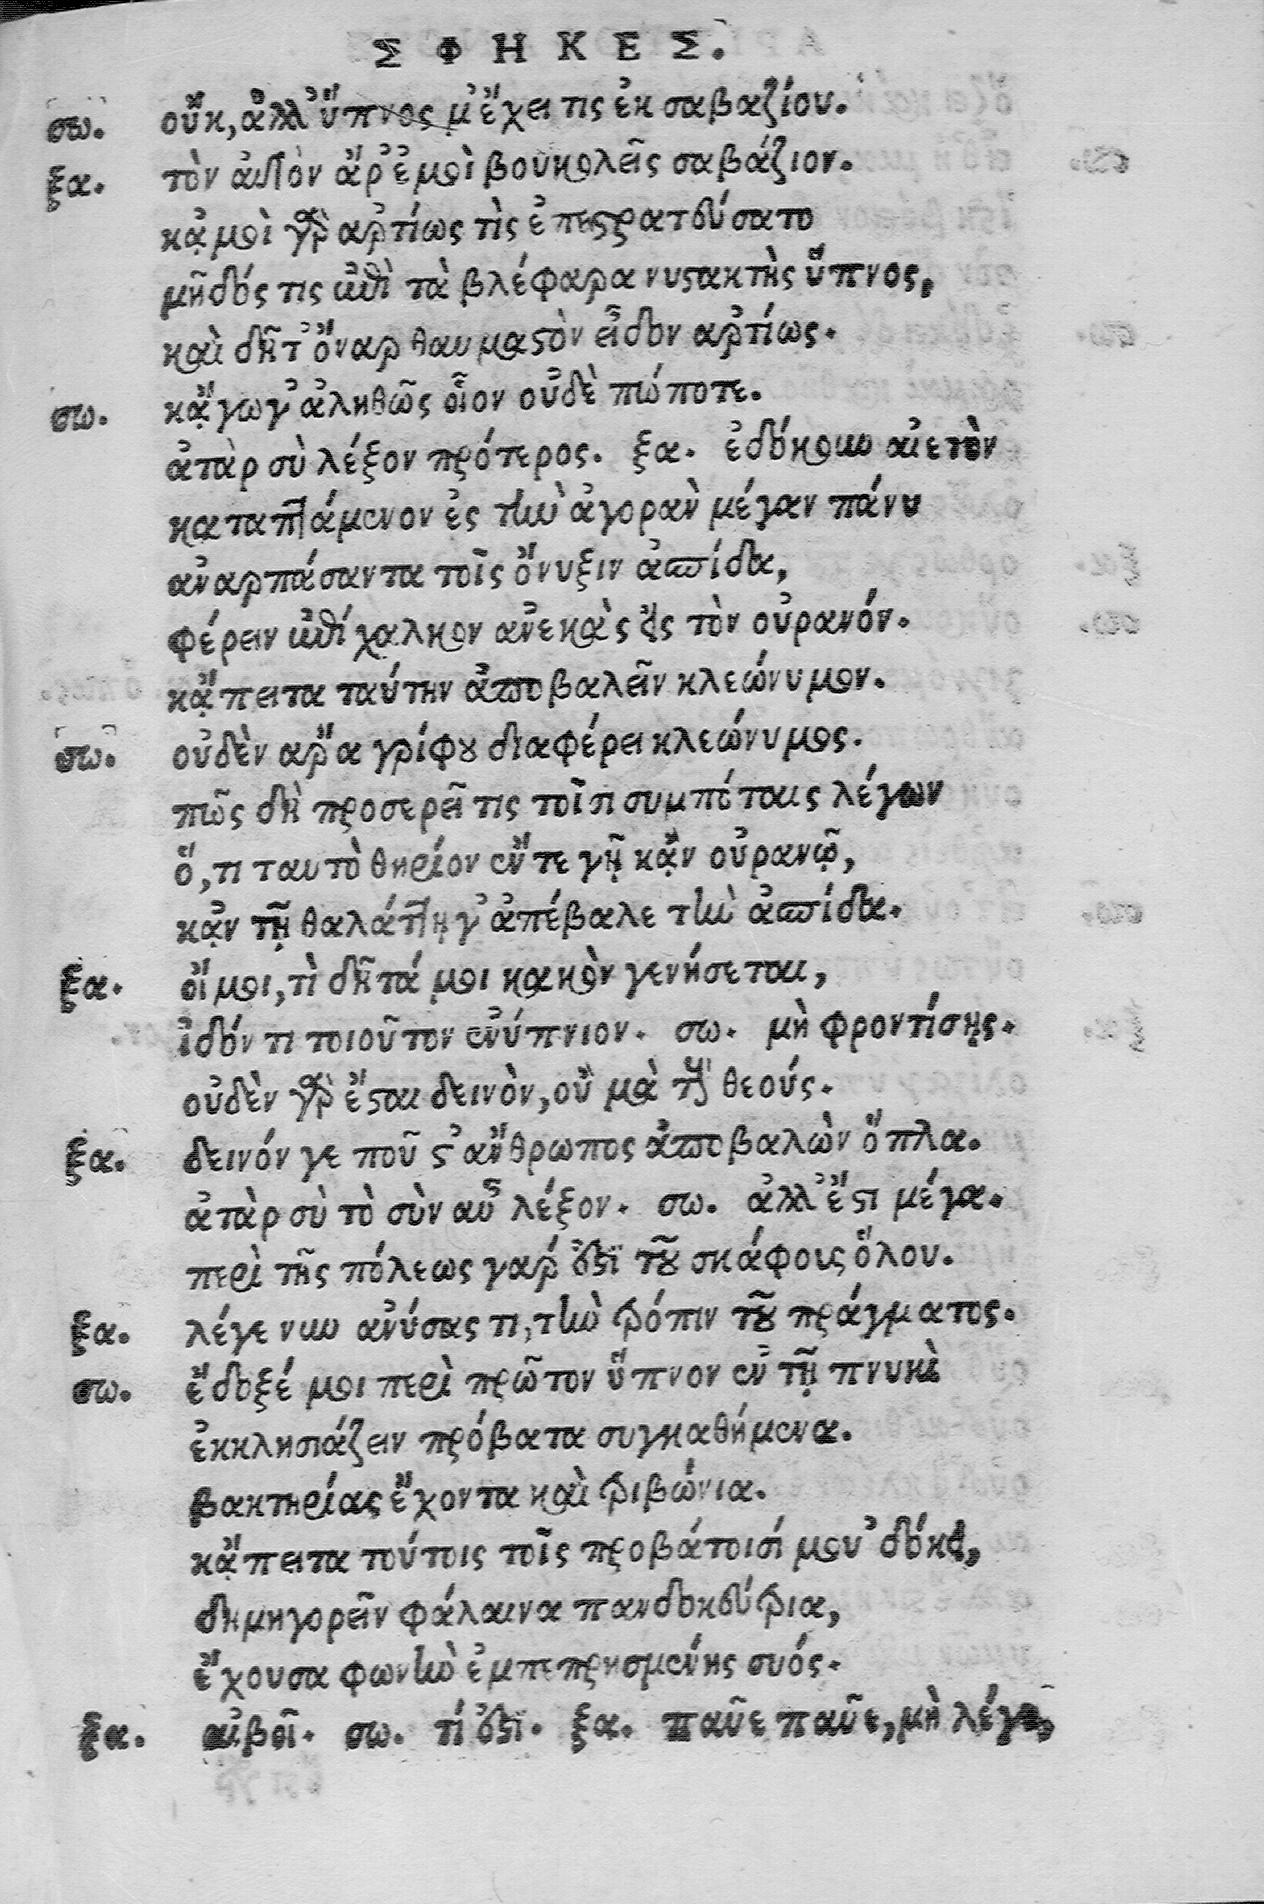 ΣΦΗΚΕΣ.
σω. οὔκ, ἀλλ' ὕπνος μ' ἔχει τις ἐκ σαβαζίου.
ξα. τὸν αὐτὸν ἄρ' ἐμοὶ βουκολεῖς σαβάζιον.
κᾀμοὶ γὰρ ἀρτίως τὶς ἐπεστρατεύσατο
μῆδός τις ἐπὶ τὰ βλέφαρα νυστακτὴς ὕπνος,
καὶ δῆτ' ὄναρ θαυμαστὸν εἶδον ἀρτίως.
σω. κᾄγωγ' ἀληθῶς οἷον οὐδὲ πώποτε.
ἀτὰρ σὺ λέξον πρότερος. ξα. ἐδόκουν αἰετὸν
καταπτάμενον ἐς τὴν ἀγορὰν μέγαν πάνυ
ἀναρπάσαντα τοῖς ὄνυξιν ἀσπίδα,
φέρειν ἐπίχαλκον ἀνεκὰς εἰς τὸν οὐρανόν.
κᾄπειτα ταύτην ἀποβαλεῖν κλεώνυμον.
σω. οὐδὲν ἄρα γρίφου διαφέρει κλεώνυμος.
πῶς δὴ προσερεῖ τις τοῖσι συμπόταις λέγων
ὅ,τι ταυτὸ θηρίον ἔν τε γῇ κᾂν οὐρανῷ,
κᾀν τῇ θαλάττῃ γ' ἀπέβαλε τὴν ἀσπίδα.
ξα. οἴμοι, τὶ δῆτά μοι κακὸν γενήσεται,
ἰδόντι τοιοῦτον ἐνύπνιον. σω. μὴ φροντίσῃς.
οὐδὲν γὰρ ἔσται δεινὸν, οὒ μὰ τοὺς θεούς.
ξα. δεινόν γε ποῦ στ' ἄνθρωπος ἀποβαλὼν ὅπλα.
ἀτὰρ σὺ τὸ σὸν αὖ λέξον. σω. ἀλλ' ἔστι μέγα.
περὶ τῆς πόλεως γάρ ἐστὶ τοῦ σκάφους ὅλου.
ξα. λέγε νυν ἀνύσας τι, τὴν τρόπιν τοῦ πράγματος.
σω. ἔδοξέ μοι περὶ πρῶτον ὕπνον ἐν τῇ πνυκὶ
ἐκκλησιάζειν πρόβατα συγκαθήμενα.
βακτηρίας ἔχοντα καὶ τριβώνια.
κᾄπειτα τούτοις τοῖς προβάτοισί μου' δόκει,
δημηγορεῖν φάλαινα πανδοκεύτρια,
ἔχουσα φωνὴν ἐμπεπρησμένης συός.
ξα. αἰβοῖ. σω. τί ἐστὶ. ξα. παῦε παῦε, μὴ λέγε,